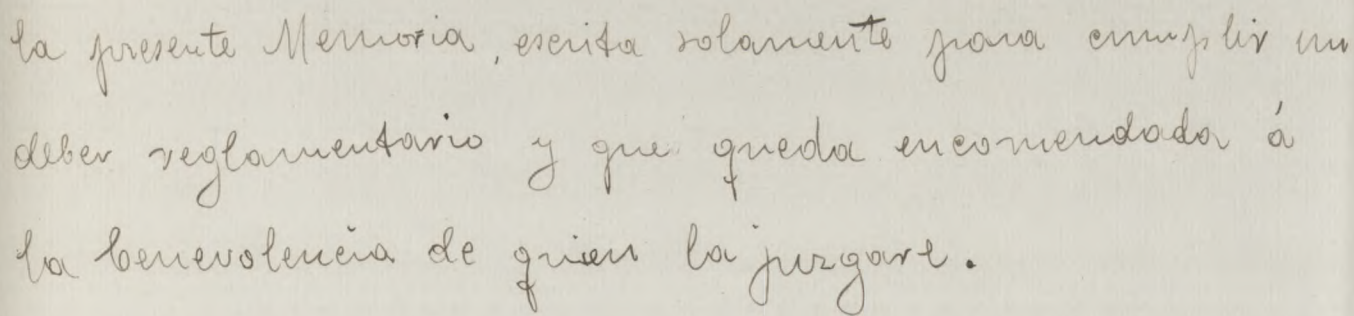 la presente Memoria, escrita solamente para cumplir un
deber reglamentario y que queda encomendada á
la benevolencia de quien la juzgare.